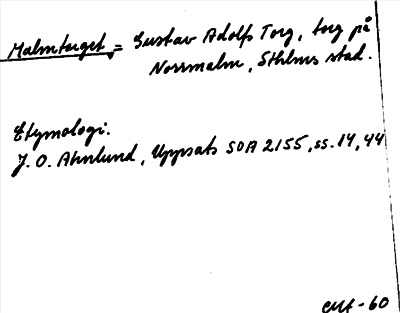 Malmtorget = Gustav Adolfs Torg, torg på
Norrmalm, Sthlms stad.
Etymologi.
J. O. Ahnlund, Uppsats SOA 2155, ss. 14, 44
-60